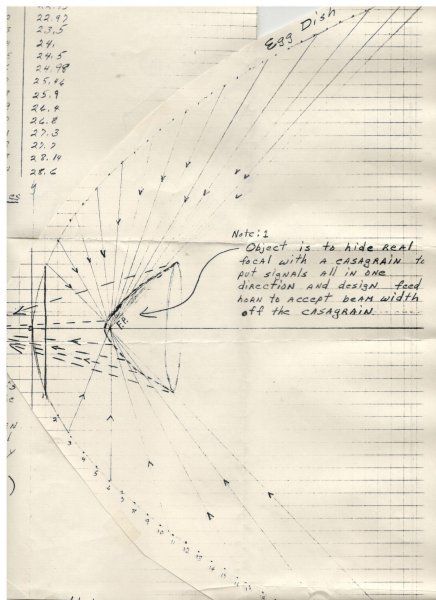 22.97
23.5
24.
24.5
24.98
25.46
25.9
26.4
26.8
27.3
27.7
28.14
28.6
Egg Dish
Note: 1
Object is to hide real
focal with a casagrain to
put signals all in one
direction and design feed
horn to accept beam width
off the casagrain
F.P.
1
2
3
4
5
6
7
8
9
10
11
12
13
14
15